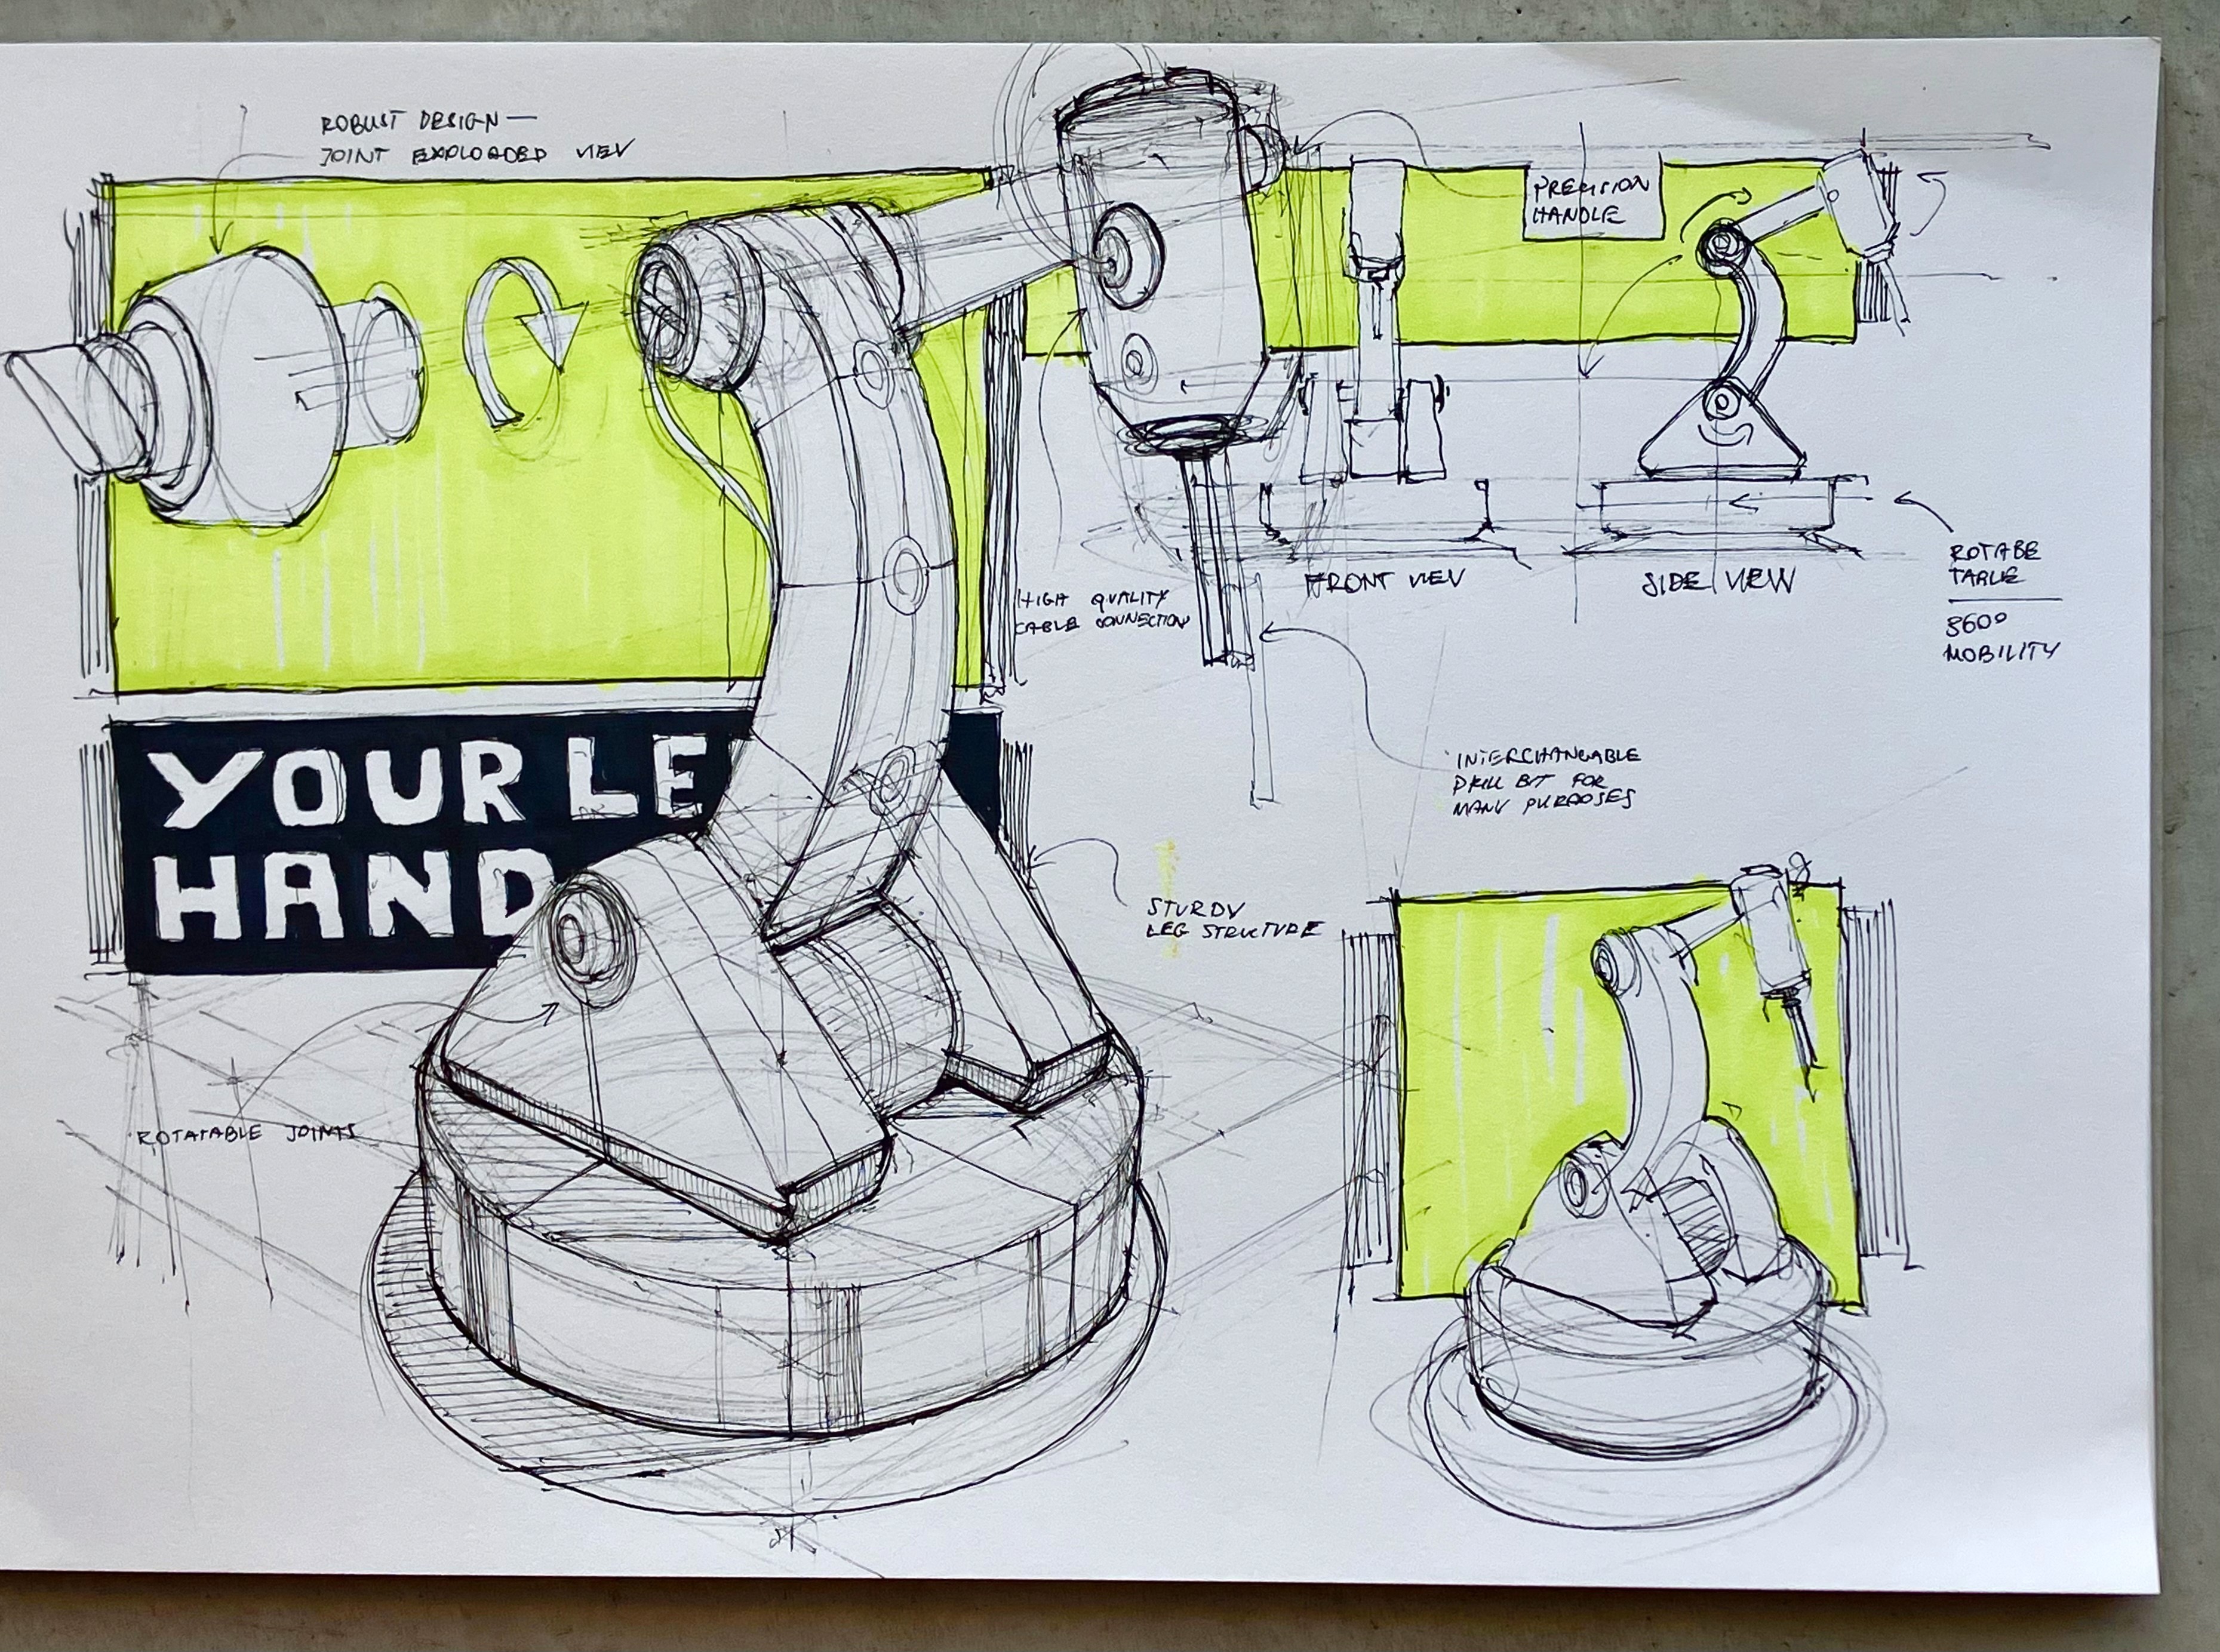 ROBUST DESIGN —
JOINT EXPLOADED VIEV
PRECISION
HANDLE
FRONT VIEV
SIDE VIEW
ROTABE
TABLE
360°
MOBILITY
HIGH QUALITY
CABLE CONNECTION
INTERCHANGABLE
DRILL BIT FOR
MANY PURPOSES
YOUR LE
HAND
STURDY
LEG STRUCTURE
ROTATABLE JOINTS